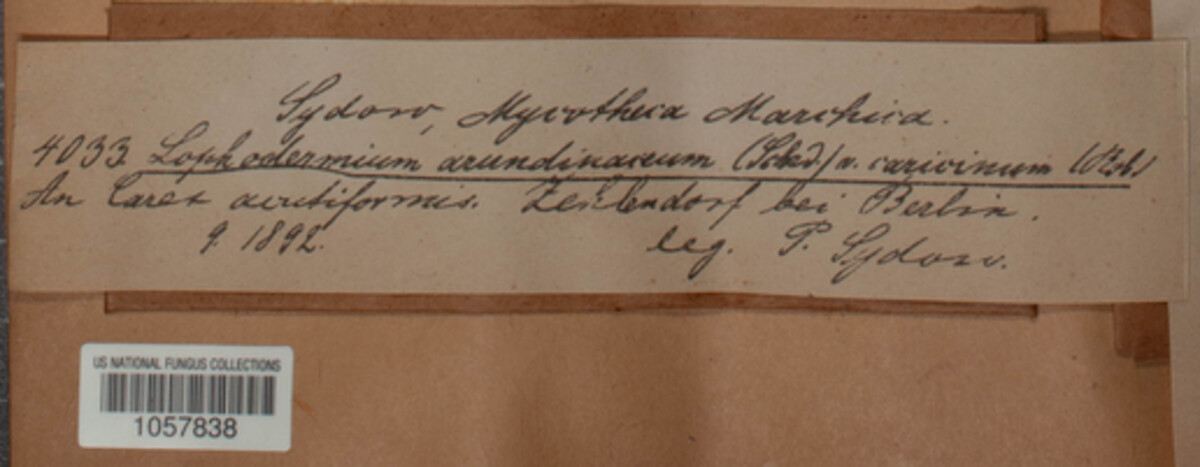 Sydow, Mycotheca Marchica.
4033. Lophodermium arundinaceum (Schrd.) v. caricinum (Rob.)
An Carex acutiformis. Zehlendorf bei Berlin.
9. 1892. leg. P. Sydow.
US NATIONAL FUNGUS COLLECTIONS
1057838